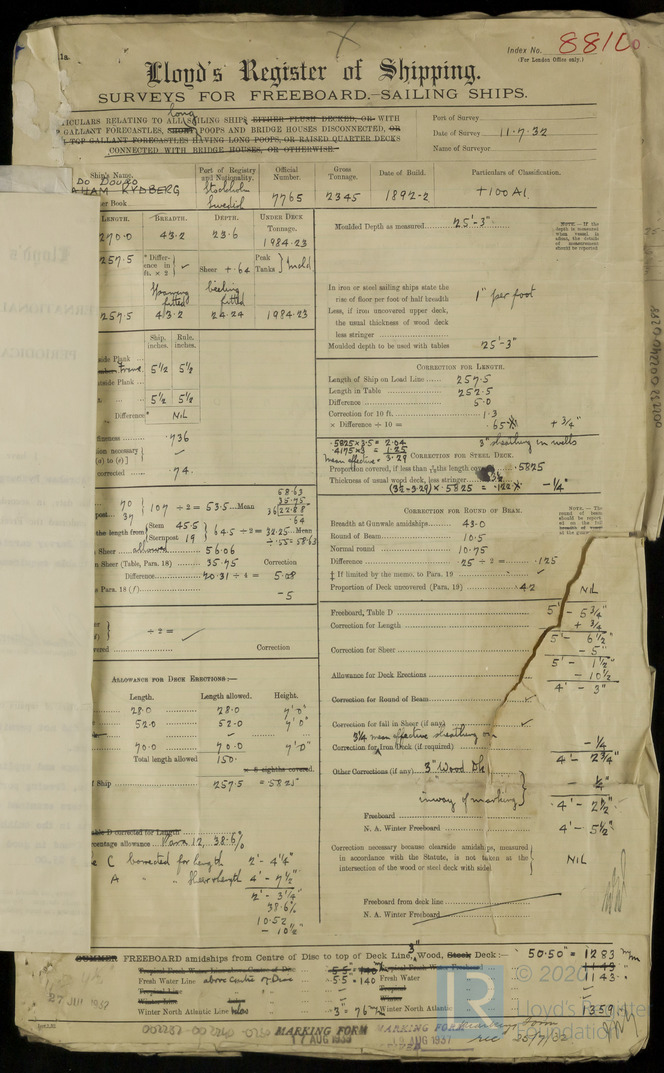 1a.
Index No. 88100
(For London Office only.)
Lloyd's Register of Shipping.
SURVEYS FOR FREEBOARD.—SAILING SHIPS.
ICULARS RELATING TO ALL SAILING SHIPS EITHER FLUSH DECKED, OR WITH
long
GALLANT FORECASTLES, SHORT POOPS AND BRIDGE HOUSES DISCONNECTED, OR
TOP GALLANT FORECASTLES HAVING LONG POOPS, OR RAISED QUARTER DECKS
CONNECTED WITH BRIDGE HOUSES, OR OTHERWISE.
Port of Survey
Date of Survey 11.7.32
Name of Surveyor
Ship's Name.
Port of Registry and Nationality.
Official Number.
Gross Tonnage.
Date of Build.
Particulars of Classification.
AHAM RYDBERG
Stockholm
Swedish
7765
2345
1892-2
+100 A1
er Book
LENGTH. BREADTH. DEPTH. UNDER DECK Tonnage.
270.0 43.2 23.6 1984.23
257.5 * Difference in ft. × 2 Sheer + .64 Peak Tanks
Sparring fitted
Ceiling fitted
257.5 43.2 24.24 1984.23
Ship, inches. Rule, inches.
side Plank
Frame 5½ 5½
utside Plank
5½ 5½
Difference* NIL
fineness .736
ion necessary
(a) to (e)]
corrected .74
70
post 37
107 ÷ 2 = 53.5 Mean
58.63
35.75
36 22.88
.64
the length from Stem 45.5
Sternpost 19
64.5 ÷ 2 = 32.25 Mean
÷ .55 = 58.63
Sheer allowed 56.06
n Sheer (Table, Para. 18) 35.75 Correction
Difference 20.31 ÷ 4 = 5.08
Para. 18 (f) -5
÷ 2 =
vered Correction
ALLOWANCE FOR DECK ERECTIONS:—
Length. Length allowed. Height.
28.0 28.0 7'0"
52.0 52.0 7'0"
70.0 70.0 7'0"
Total length allowed 150.
f Ship 257.5 = .5825
able D corrected for Length
rcentage allowance Para 12, 38.6%
C Corrected for length 2'-4¼"
A " " Sheer & length 4'-7½"
2'-3¼"
38.6%
10.52
- 10½"
Moulded Depth as measured 25'-3"
In iron or steel sailing ships state the
rise of floor per foot of half breadth 1" per foot
Less, if iron uncovered upper deck,
the usual thickness of wood deck
less stringer
Moulded depth to be used with tables 25'-3"
CORRECTION FOR LENGTH.
Length of Ship on Load Line 257.5
Length in Table 252.5
Difference 5.0
Correction for 10 ft. 1.3
× Difference ÷ 10 = .65 + ¾"
.5825 × 3.5 = 2.04
.4175 × 3 = 1.25
Mean effective = 3.29
3" sheathing in wells
CORRECTION FOR STEEL DECK.
Proportion covered, if less than 7/10ths length covered .5825
Thickness of usual wood deck, less stringer 3½
(3½-3.29) × .5825 = .122 -¼"
CORRECTION FOR ROUND OF BEAM.
Breadth at Gunwale amidships 43.0
Round of Beam 10.5
Normal round 10.75
Difference .25 ÷ 2 = .125
‡ If limited by the memo. to Para. 19
Proportion of Deck uncovered (Para. 19) .42 NIL
Freeboard, Table D 5' - 5¾"
Correction for Length + ¾"
5' - 6½"
Correction for Sheer - 5"
5' - 1½"
Allowance for Deck Erections - 10½
4' - 3"
Correction for Round of Beam
Correction for fall in Sheer (if any)
3¼ mean effective sheathing on
Correction for Iron Deck (if required) - ¼
4' - 2¾"
Other Corrections (if any) 3" Wood Dk
inway of marking - ¼"
Freeboard 4' - 2½"
N. A. Winter Freeboard 4' - 5½"
Correction necessary because clearside amidships, measured
in accordance with the Statute, is not taken at the
intersection of the wood or steel deck with side
NIL
Freeboard from deck line
N. A. Winter Freeboard
SUMMER FREEBOARD amidships from Centre of Disc to top of Deck Line, 3" Wood, Steel Deck:— 50.50" = 1283 m/m
Fresh Water Line above Centre of Disc 5.5" = 140
Fresh Water 1143
Tropical Line
Tropical
Winter Line
Winter
Winter North Atlantic Line below 3" = 76
Winter North Atlantic 1359
27 JUL 1932
MARKING FORM
17 AUG 1939
MARKING FORM
rec 25/7/32
002232-002240-0298
© 2020
LR
Lloyd's Register
Foundation